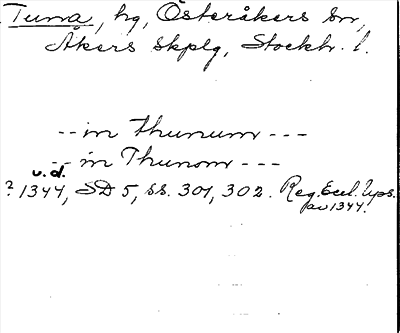 Tuna, hg, Österåkers sn,
Åkers skplg, Stockh. l.
-- in thunum ---
-- in Thunom ---
u.d.
? 1344, SD 5, ss. 301, 302. Reg. Eccl. Ups.
av 1344.